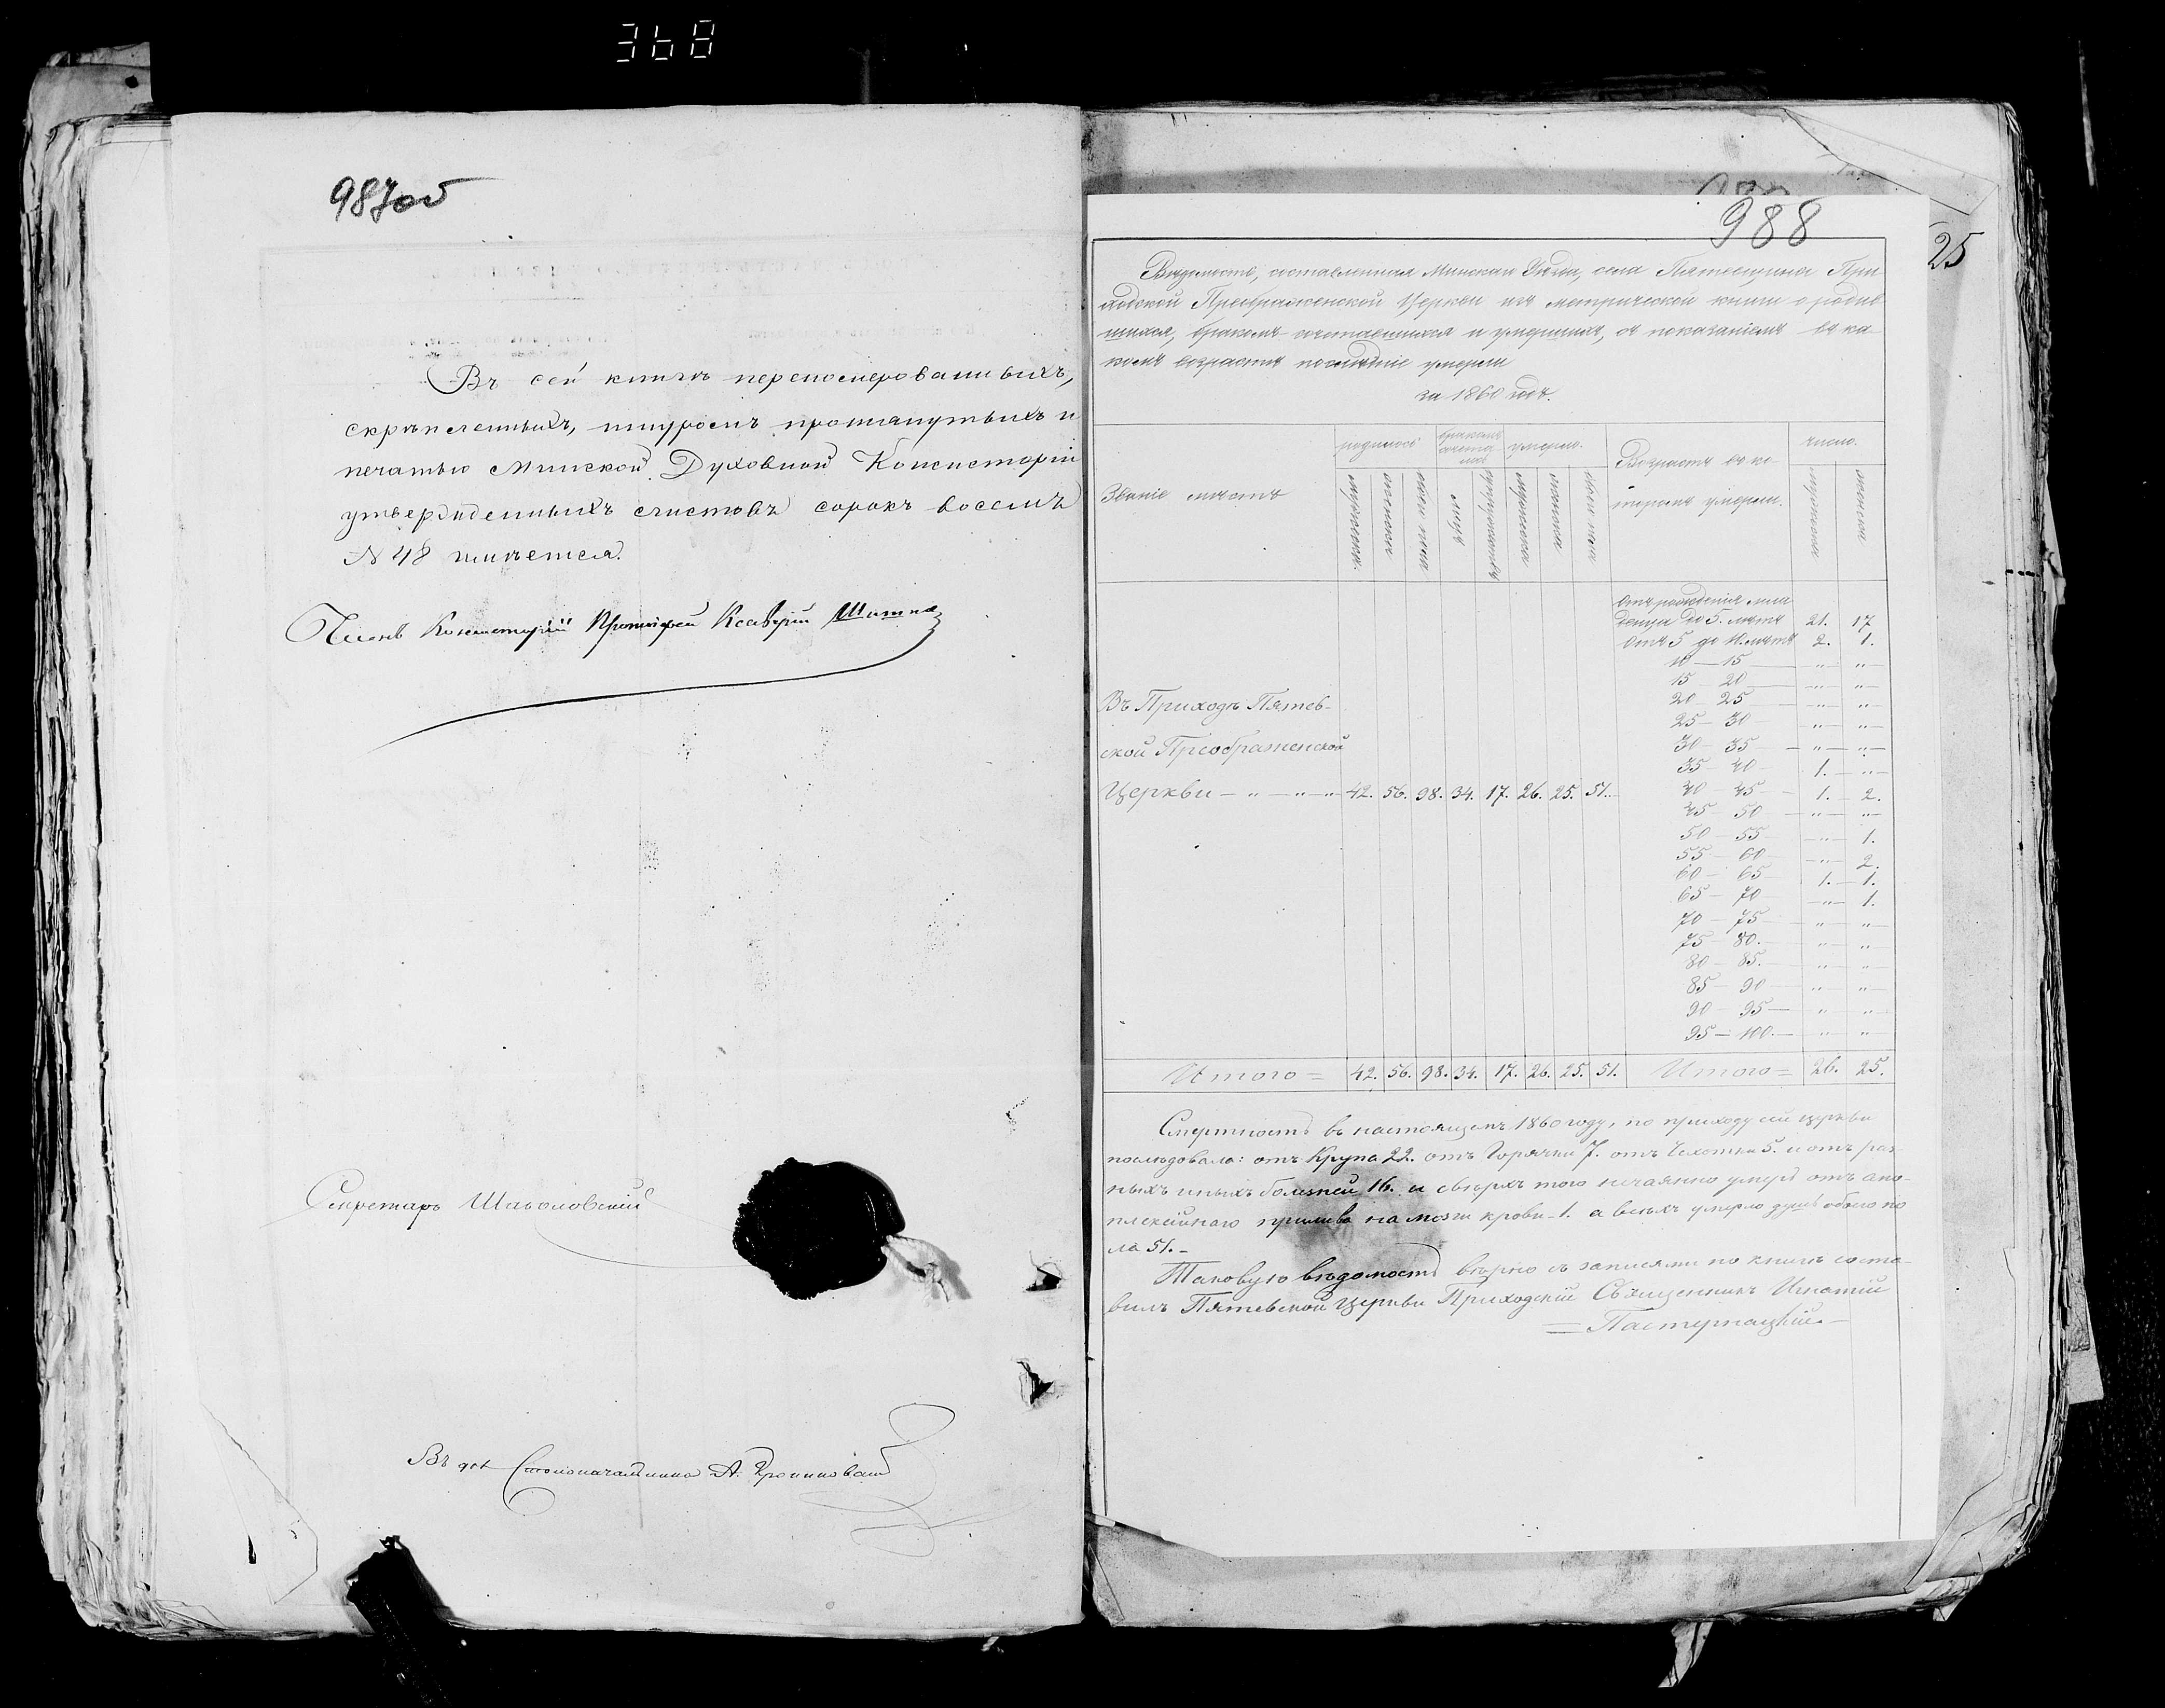 368
987об
Въ сей книгѣ перенумерованныхъ,
скрѣпленныхъ, шнуромъ протянутыхъ и
печатью Минской Духовной Консисторіи
утвержденныхъ листовъ сорокъ восемь
№ 48 имѣется.
Членъ Консисторіи Протоіерей Ксаверій
Секретарь
Въ дол. Столоначальника А.
988
25
Вѣдомость, составленная Минскаго Уѣзда, села При
ходской Преображенской Церкви изъ метрической книги о родив
шихся, бракомъ сочетавшихся и умершихъ, съ показаніемъ въ ка
комъ возрастѣ послѣдніе умерли
за 1860 годъ.
Званіе мѣстъ
родилось
бракомъ сочета лось
умерло.
Возрастъ въ ко
торомъ умерли.
число.
мужескаго.
женскаго
обоего пола
мужескаго
женскаго
обоего пола
мужескаго
женскаго
Отъ рожденія мла
денца до 5. лѣтъ 21. 17
Отъ 5 до 10. лѣтъ 2. 1.
10 — 15 — " — " —
15 — 20 — " — " —
20 — 25 — " — " —
25 — 30 — " — " —
30 — 35 — " — " —
35 — 40 — 1. — " —
40 — 45 — 1. — 2.
45 — 50 — " — " —
50 — 55 — " — 1.
55 — 60 — " — 2.
60 — 65 1. — 1.
65 — 70 — " — 1.
70 — 75 — " — " —
75 — 80. — " — " —
80 — 85. — " — " —
85 — 90 — " — " —
90 — 95 — " — " —
95 — 100. — " — " —
Въ Приходѣ Пятев-
ской Преображенской
Церкви — " — " — " 42. 56. 98. 34. 17. 26. 25. 51.
Итого = 42. 56. 98. 34. 17. 26. 25. 51. Итого = 26. 25.
Смертность въ настоящемъ 1860 году, по приходу сей церкви
послѣдовала: отъ Крупа 22. отъ Горячки 7. отъ Чахотки 5. и отъ раз
ныхъ иныхъ болѣзней 16. и сверхъ того нечаянно умеръ отъ апо-
плексійнаго прилива на мозги крови - 1. а всѣхъ умерло душъ обоего по
ла 51. -
Таковую вѣдомость вѣрно съ записями по книгѣ соста-
вилъ Пятевской Церкви Приходскій Священникъ Игнатій
= Пастернацкій. -